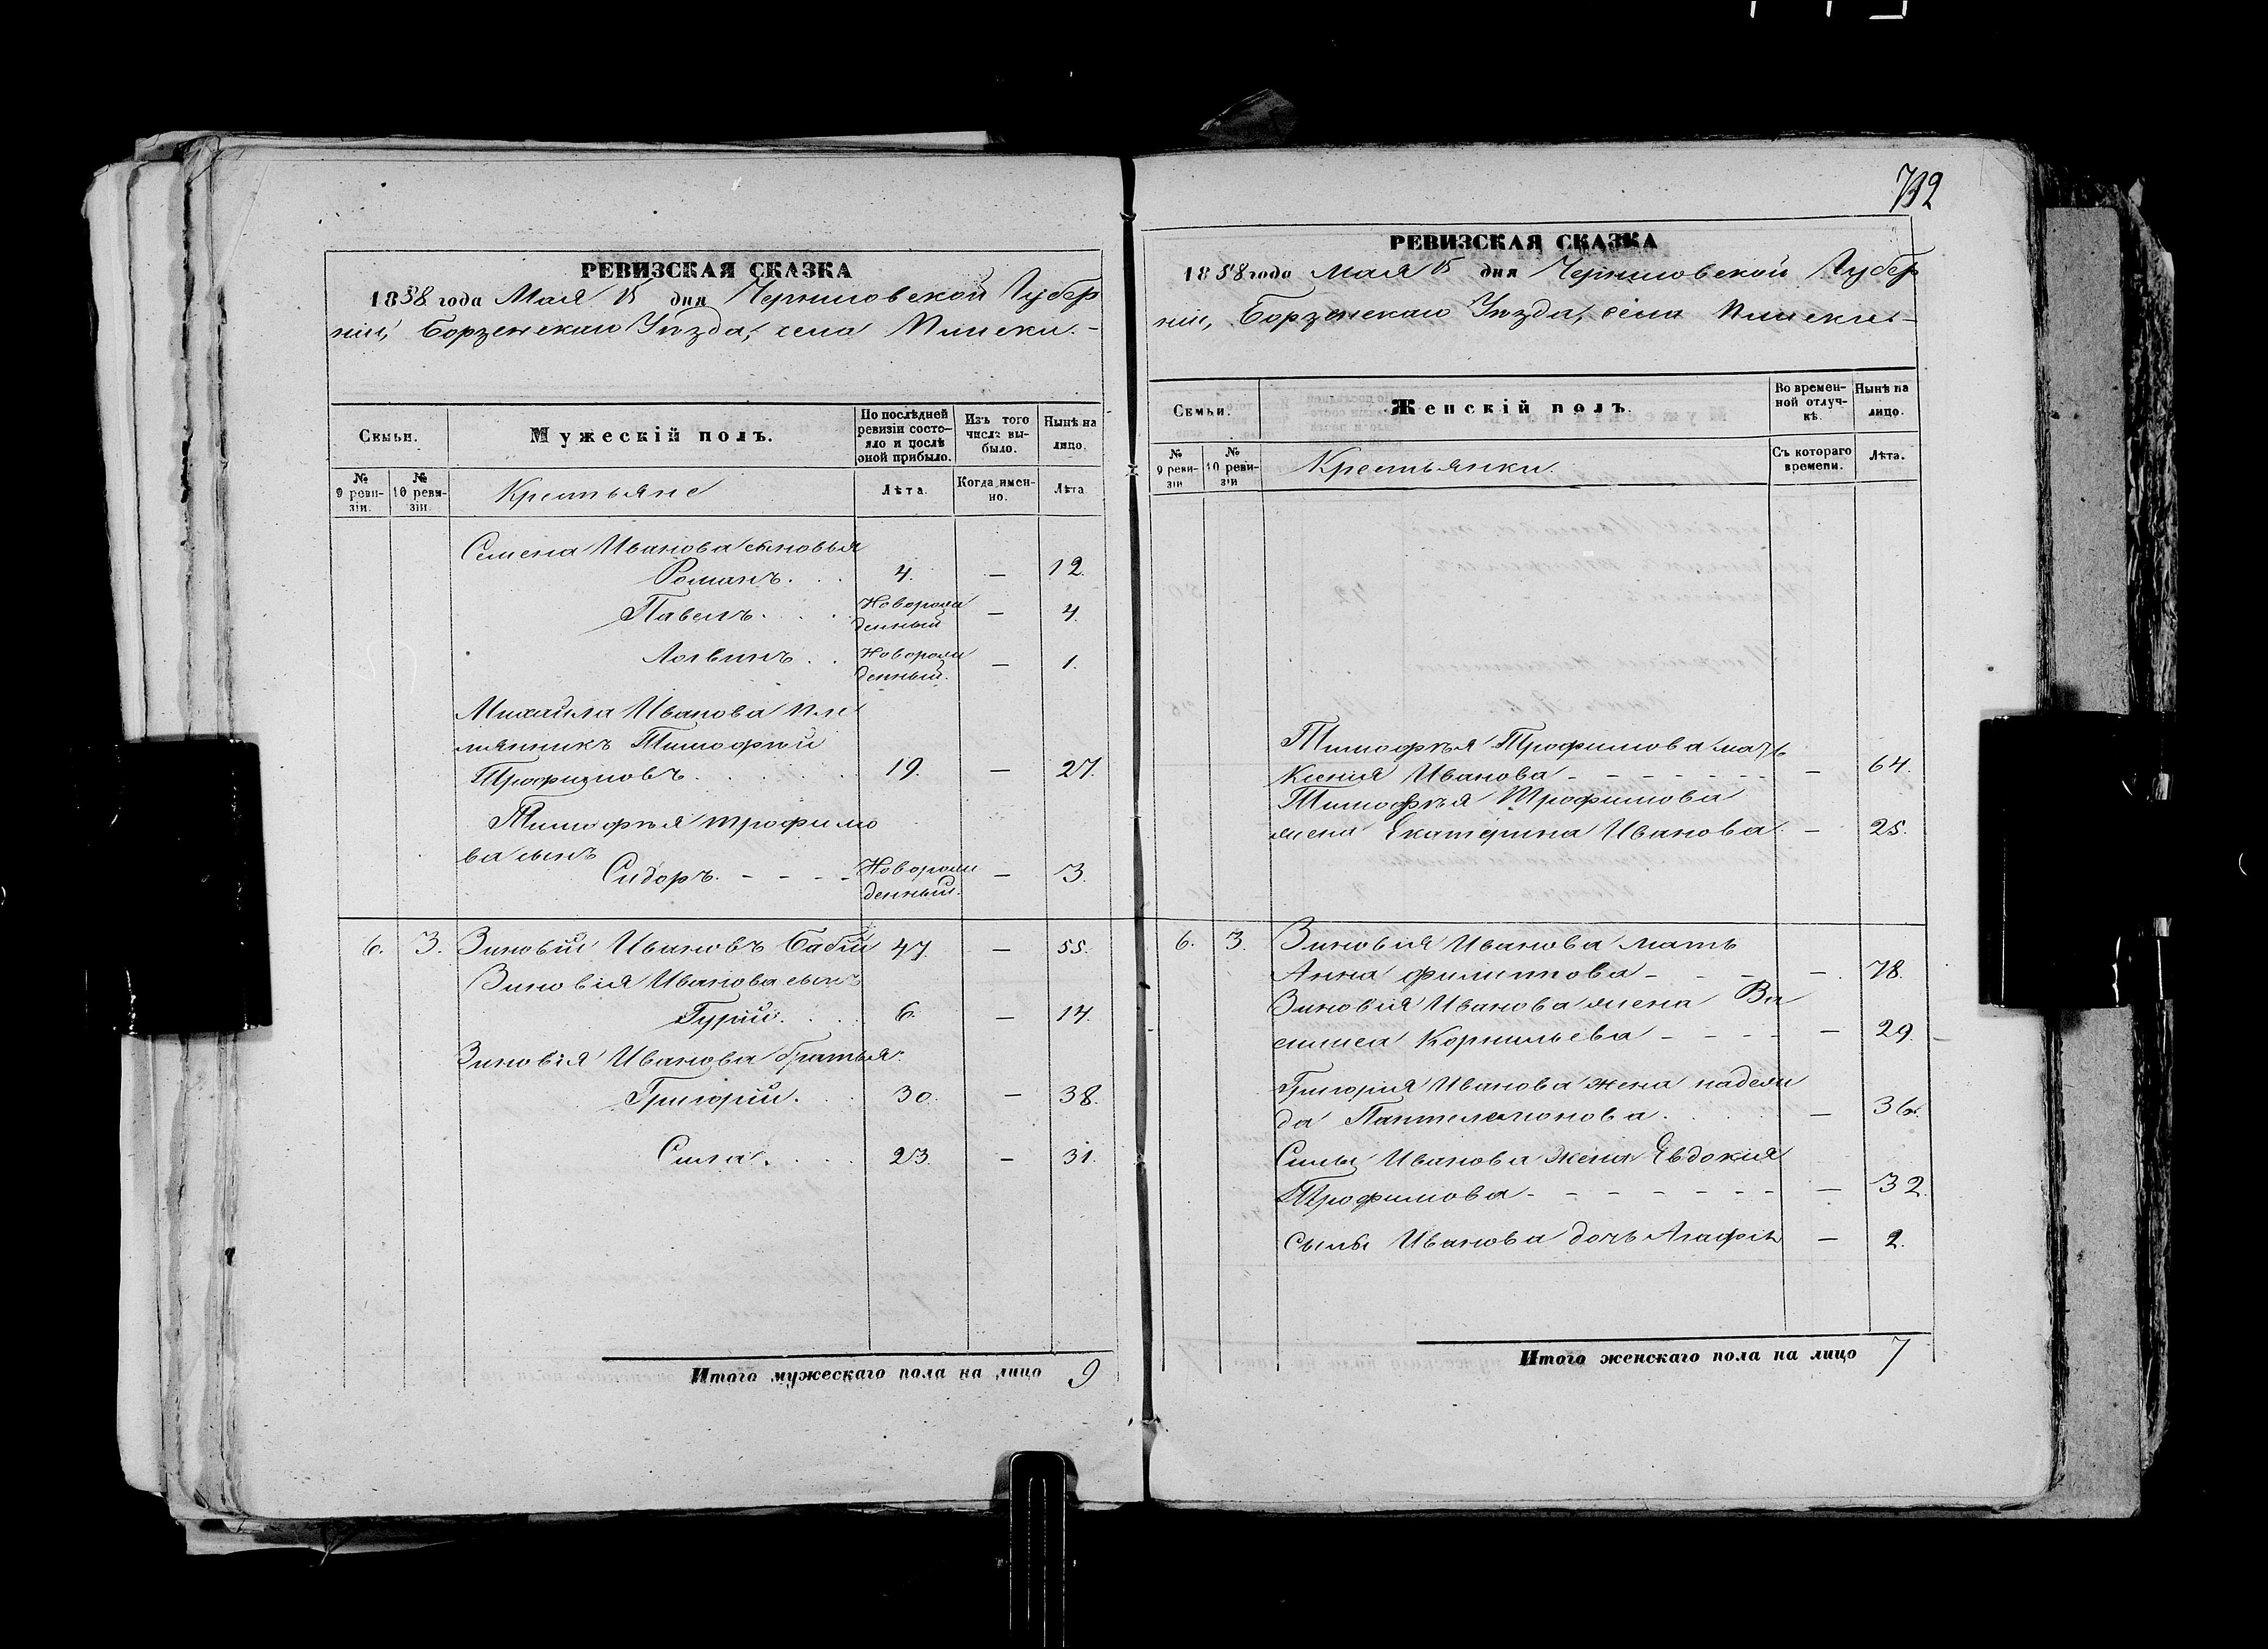 РЕВИЗСКАЯ СКАЗКА
1858 года Мая 15 дня Черниговской Губер
ніи, Борзенскаго Уѣзда, села Плиски.
Семьи.
Мужескій полъ.
По послѣдней ревизіи состояло и послѣ оной прибыло.
Изъ того числа выбыло.
Нынѣ на лицо.
№ 9 ревизіи.
№ 10 ревизіи.
Крестьяне
Лѣта.
Когда именно.
Лѣта
Семена Иванова сыновья
Романъ. 4. — 12.
Павелъ. Новорож денный — 4.
Логвинъ. Новорож денный. — 1.
Михайла Иванова пле
мянникъ Тимофѣй
Трофимовъ. 19. — 27.
Тимофѣя Трофимо
ва сынъ
Сидоръ. - - - - Новорож денный. — 3.
6. 3. Зиновій Ивановъ Бабій 47. — 55.
Зиновія Иванова сынъ
Гурій. 6. — 14.
Зиновія Иванова братья.
Григорій. 30. — 38.
Сила. 23. — 31.
Итого мужескаго пола на лицо 9
712
РЕВИЗСКАЯ СКАЗКА
1858 года Мая 15 дня Черниговской Губер
ніи, Борзенскаго Уѣзда, села Плиски.
Семьи.
Женскій полъ.
Во временной отлучкѣ.
Нынѣ на лицо.
№ 9 ревизіи
№ 10 ревизіи
Крестьянки.
Съ котораго времени.
Лѣта.
Тимофѣя Трофимова мать
Ксенія Иванова - - - - - - - — 64.
Тимофѣя Трофимова
жена Екатерина Иванова. — 25.
6. 3. Зиновія Иванова мать
Анна Филиппова - - - - — 78.
Зиновія Иванова жена Ва
силиса Корнильева - - - - — 29.
Григорія Иванова жена Надеж
да Пантелемонова. — 36.
Силы Иванова жена Евдокия
Трофимова - - - - - - - — 32.
Сылы Иванова дочь Агафія — 2.
Итого женскаго пола на лицо 7